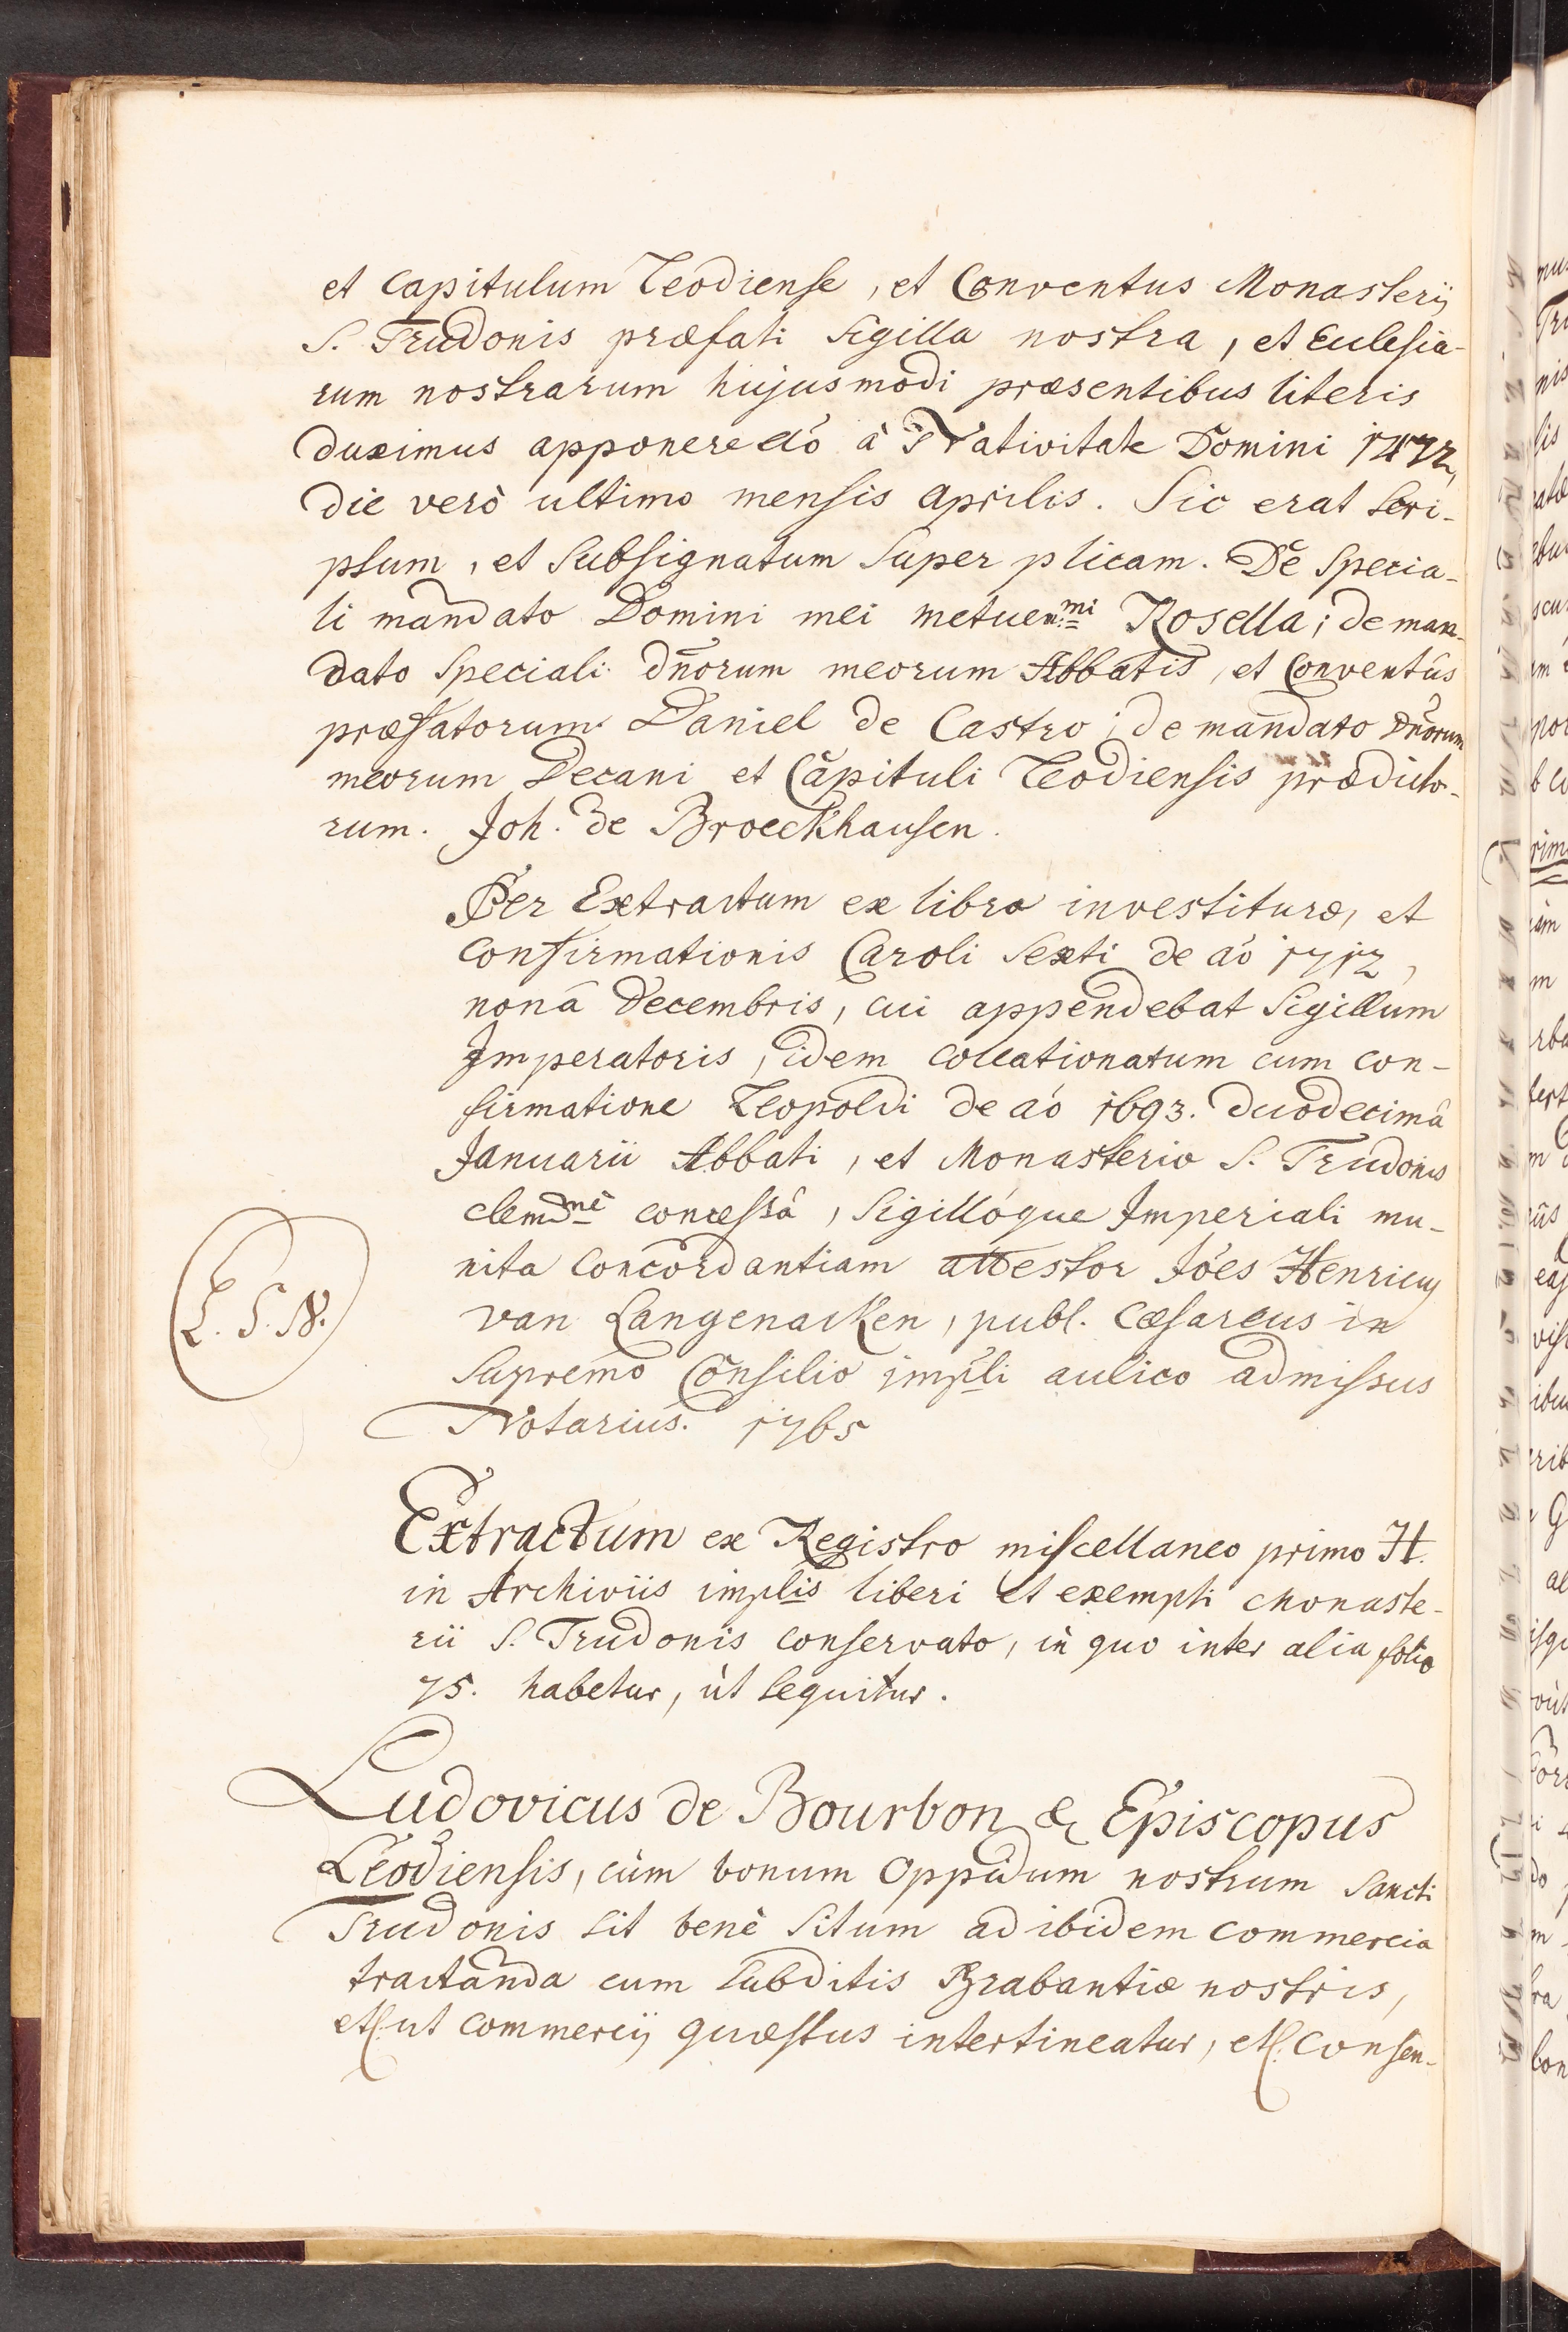 et Capitulum Leodiense, et Conventus Monasterij
S. Trudonis præfati Sigilla nostra, et Ecclesia-
rum nostrarum hujusmodi præsentibus literis
duximus apponere aó à Nativitate Domini 1472,
die verò ultimo mensis Aprilis. Sic erat scri-
ptum, et Subsignatum Super plicam. De Specia-
li mandato Domini mei metuen:mi Rosella; de man-
dato Speciali dñorum meorum Abbatis, et Conventûs
præfatorum Daniel de Castro; de mandato Dñorum
meorum Decani et Capituli Leodiensis prædicto-
rum. Joh. de Broeckhausen.
Per Extractum ex libro investituræ, et
Confirmationis Caroli Sexti de aó 1712,
nonâ Decembris, cui appendebat Sigillum
Imperatoris, idem collationatum cum con-
firmatione Leopoldi de aó 1693. duodecimâ
Januarii Abbati, et Monasterio S. Trudonis
clemṁè concessâ, Sigillóque Imperiali mu-
nita Concordantiam attestor Jões Henricus
van Langenacken, publ. Cæsareus in
Supremo Consilio impli aulico admissus
Notarius. 1765
L. S. N.
Extractum ex Registro miscellaneo primo H.
in Archiviis implis liberi et exempti Monaste-
rii S. Trudonis conservato, in quo inter alia folio
75. habetur, ùt sequitur.
Ludovicus de Bourbon & Episcopus
Leodiensis, cùm bonum Oppidum nostrum Sancti
Trudonis sit benè situm ad ibidem commercia
tractanda cum Subditis Brabantiæ nostris,
et ut commercij quæstus intertineatur, et Consen-